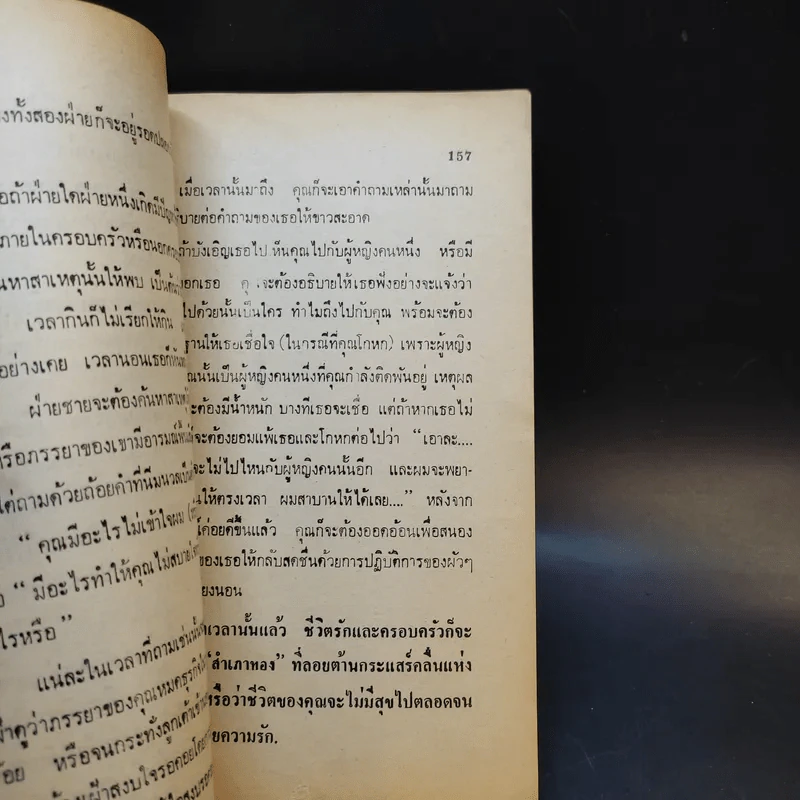 งทั้งสองฝ่ายก็จะอยู่รอด
อถ้าฝ่ายใดฝ่ายหนึ่งเกิดมีปัญ
ภายในครอบครัวหรือนอก
นหาสาเหตุนั้นให้พบ เป็นต้น
เวลากินก็ไม่เรียกให้กิน
อย่างเคย เวลานอนเธอก็
ฝ่ายชายจะต้องค้นหาสาเหตุ
รือภรรยาของเขามีอารมณ์
ต่ถามด้วยถ้อยคำที่นิ่มนวล
“ คุณมีอะไรไม่เข้าใจผม
อ “ มีอะไรทำให้คุณไม่สบาย
ไรหรือ ”
แน่ละในเวลาที่ถามเช่นนั้น
ดูว่าภรรยาของคุณหมดธุรกิจ
อย หรือจนกระทั่งลูกเต้าเข้า
เฝ้าสงบใจรอคอยโดย
157
เมื่อเวลานั้นมาถึง คุณก็จะเอาคำถามเหล่านั้นมาถาม
ธิบายต่อคำถามของเธอให้ขาวสะอาด
ถ้าบังเอิญเธอไปเห็นคุณไปกับผู้หญิงคนหนึ่ง หรือมี
อกเธอ คุณจะต้องอธิบายให้เธอฟังอย่างจะแจ้งว่า
ไปด้วยนั้นเป็นใคร ทำไมถึงไปกับคุณ พร้อมจะต้อง
ฐานให้เธอเชื่อใจ (ในกรณีที่คุณโกหก) เพราะผู้หญิง
ณนั้นเป็นผู้หญิงคนหนึ่งที่คุณกำลังติดพันอยู่ เหตุผล
จะต้องมีน้ำหนัก บางทีเธอจะเชื่อ แต่ถ้าหากเธอไม่
ก็จะต้องยอมแพ้เธอและโกหกต่อไปว่า “เอาละ....
จะไม่ไปไหนกับผู้หญิงคนนั้นอีก และผมจะพยา-
นให้ตรงเวลา ผมสาบานให้ได้เลย....” หลังจาก
ค่อยดีขึ้นแล้ว คุณก็จะต้องออดอ้อนเพื่อสนอง
ของเธอให้กลับสดชื่นด้วยการปฏิบัติการของผัวๆ
ยงนอน
นเวลานั้นแล้ว ชีวิตรักและครอบครัวก็จะ
“สำเภาทอง” ที่ลอยต้านกระแสร์คลื่นแห่ง
หรือว่าชีวิตของคุณจะไม่มีสุขไปตลอดจน
ยความรัก.